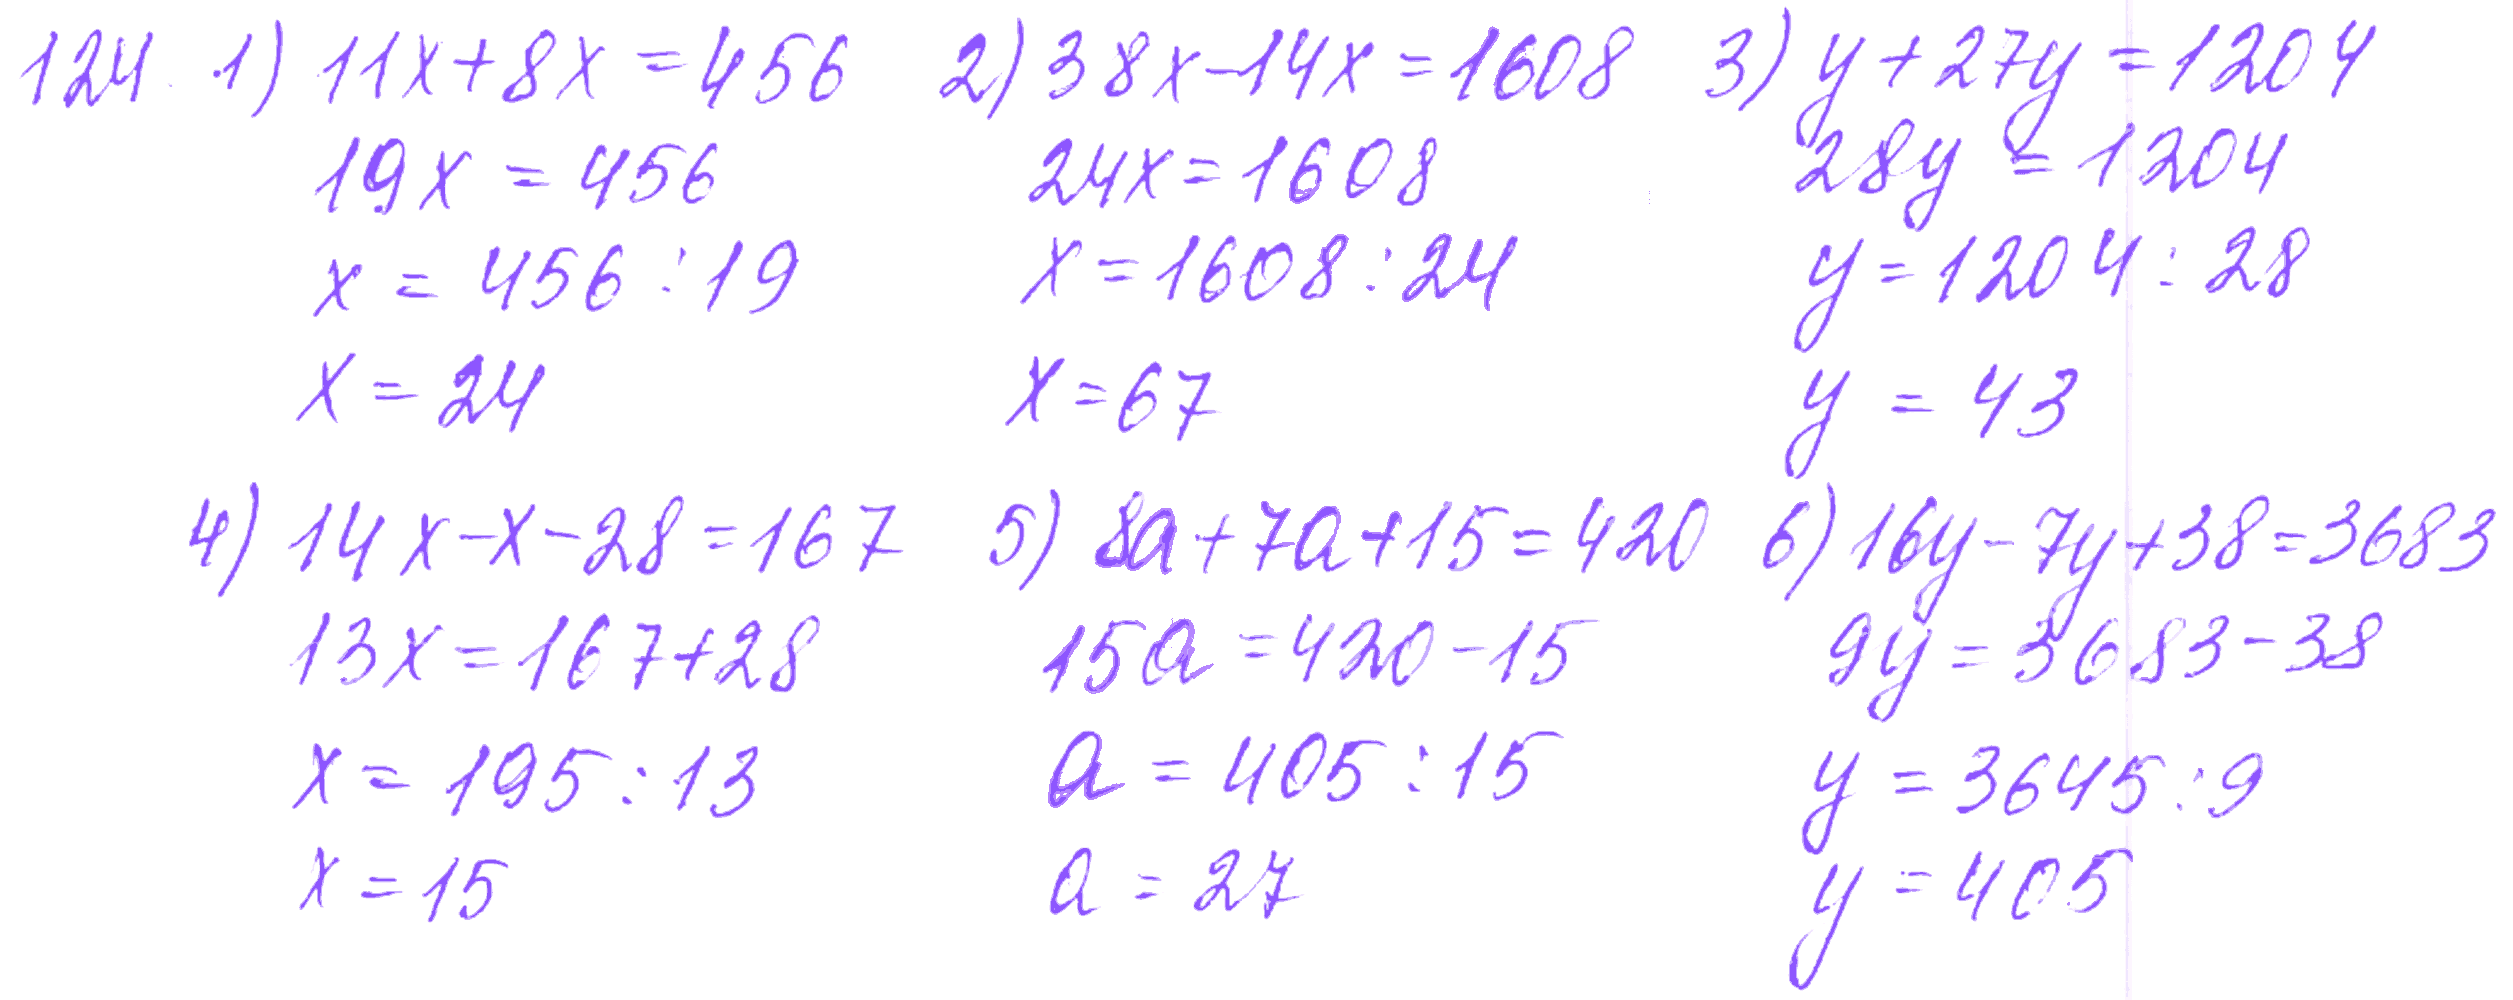 124. 1) 11x+8x=456
19x=456
x=456:19
x=24
2) 38x-14x=1608
24x=1608
x=1608:24
x=67
3) y+27y=1204
28y=1204
y=1204:28
y=43
4) 14x-x-28=167
13x=167+28
x=195:13
x=15
5) 8a+7a+15=420
15a=420-15
a=405:15
a=27
6) 16y-7y+38=3683
9y=3683-38
y=3645:9
y=405